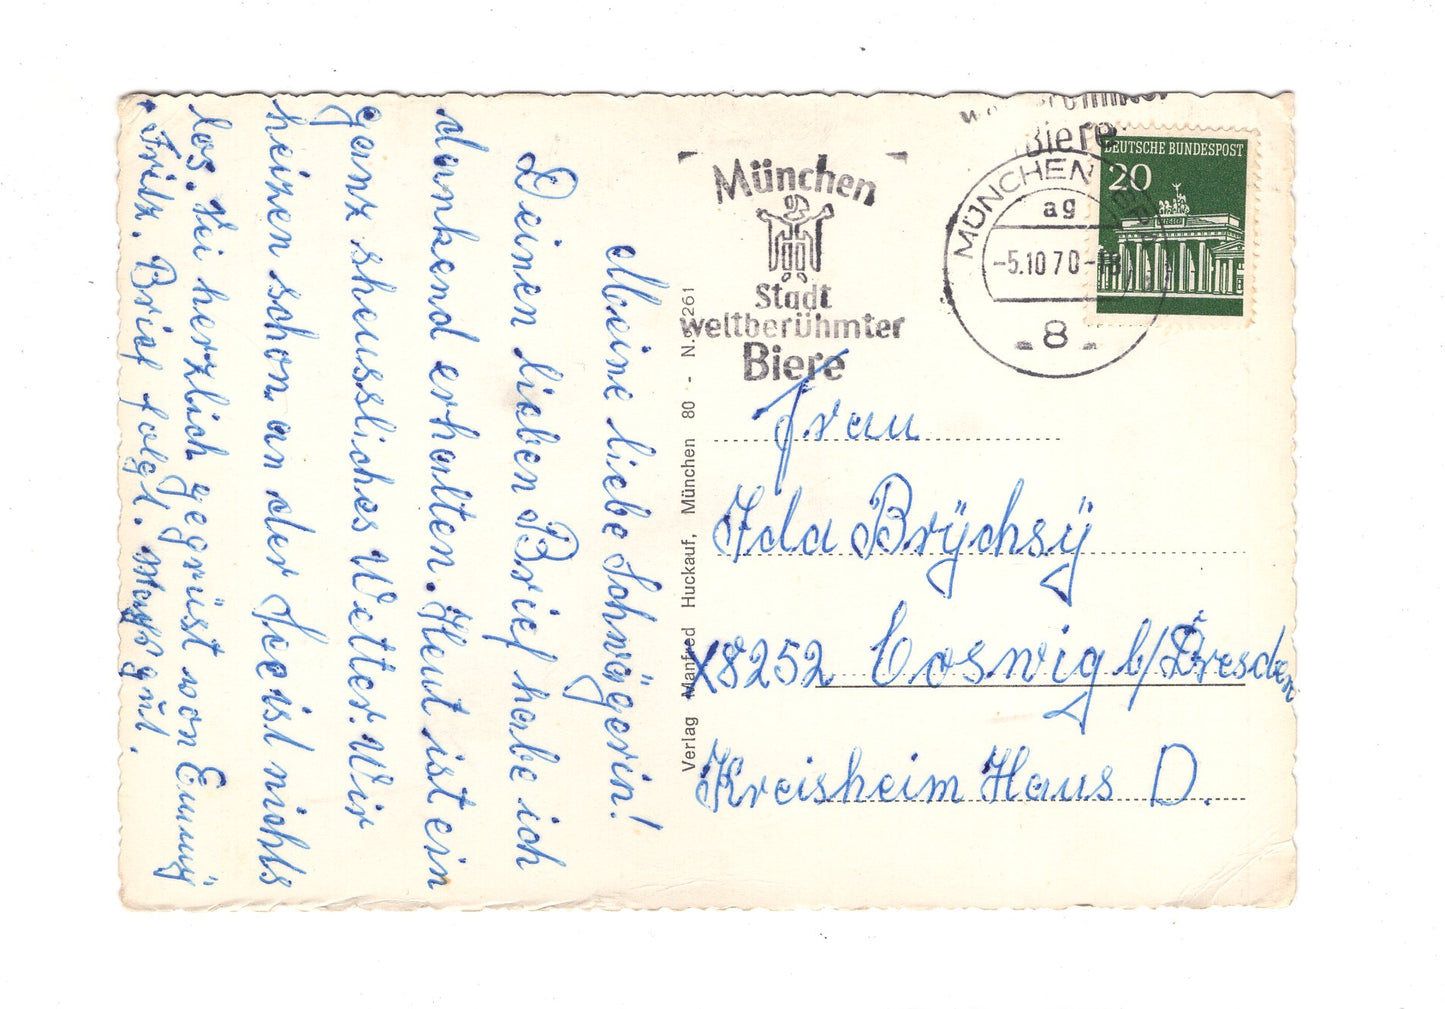 Meine liebe Schwägerin!
Deinen lieben Brief habe ich
dankend erhalten. Heut ist ein
ganz sheussliches Wetter. Wir
heizen schon an der See ist nichts
los. Sei herzlich gegrüst von Emmÿ
Fritz. Brief folgt. gut.
Verlag Manfred Huckauf, München 80 - N. 261
München
Stadt
weltberühmter
Biere
weltberühmter
Biere
MÜNCHEN
ag
-5.10 70-18
8
DEUTSCHE BUNDESPOST
20
Frau
Ida Brÿchsÿ
X8252 Coswig b/Dresden
Kreisheim Haus D.